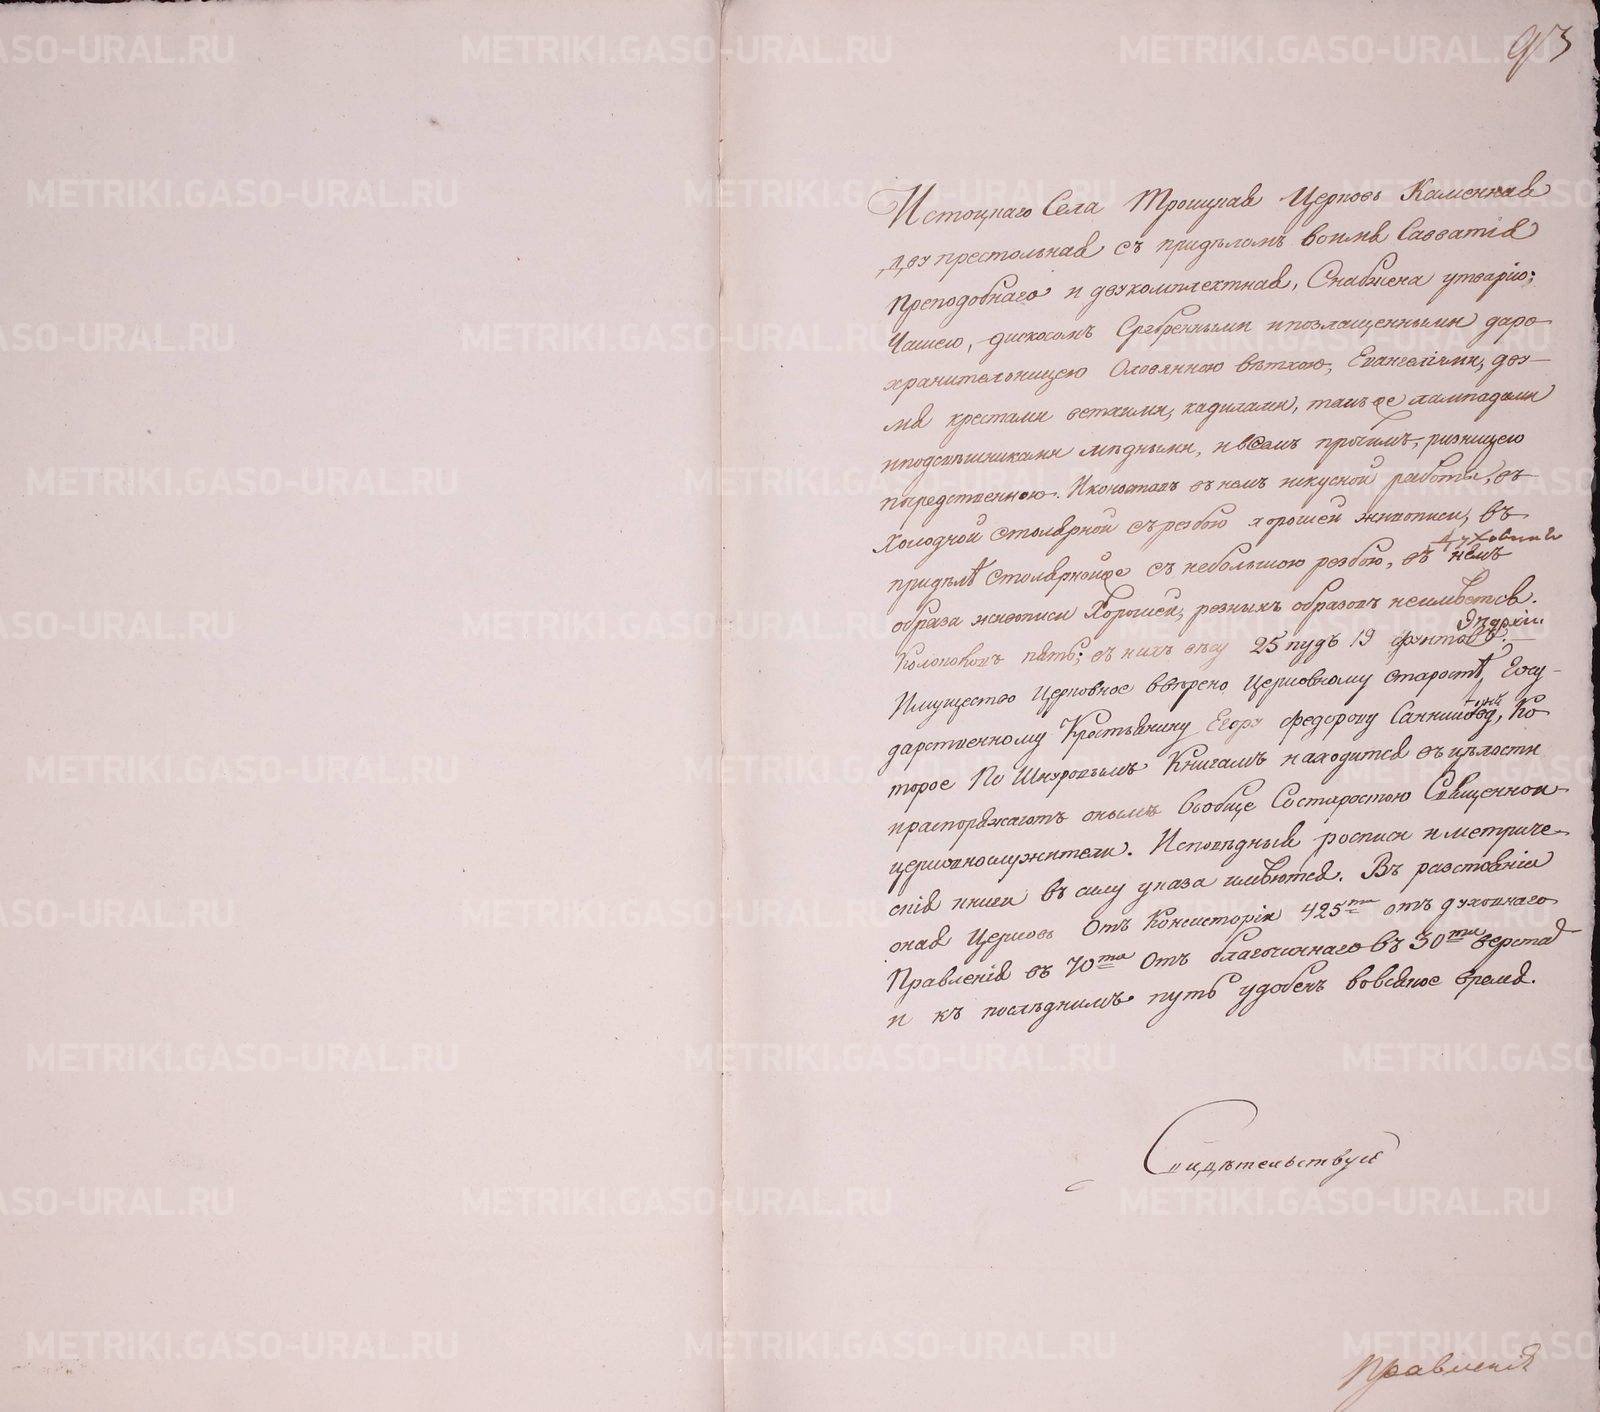 93
Истоцкаго Села Троицкая Церковь Каменная
двупрестольная съ придѣломъ воимя Савватія
Преподобнаго и двукомплектная, Снабжена утварію;
Чашею, дискосомъ Сребренными ипозлащенными даро-
хранительницею Оловянною вѣтхою, Евангеліями, дву-
мя крестами ветхими, кадилами, такъ же лампадами
иподсвѣшниками мѣдными, и всемъ прочимъ, ризницею
посредственною. Иконостасъ въ немъ искусной работы, въ
Холодной столярной съ резбою хорошей живописи, въ
придѣлѣ Столярнойже съ небольшою резбою, въ немъ
образа живописи Хорошей, резныхъ образовъ неимѣется.
Колоколовъ пять; въ нихъ вѣсу 25 пудъ 19 фунтовъ.
Имущество Церковное ввѣрено Церковному старостѣ Госу-
дарственному Крестьянину Егору Федорову, Ко-
торое По Шнуровымъ Книгамъ находится въ цѣлости
ираспоряжаютъ онымъ Вообще Состаростою Священно-
церковнослужители. Исповѣдныя росписи и метриче-
скія книги въ силу указа имѣются. Въ разстояніи
оная Церковь Отъ Консисторіи 425ти отъ духовнаго
Правленія въ 70ти Отъ благочиннаго въ 30ти верстах
и къ послѣднимъ путь удобенъ вовсякое время.
Свидѣтельствуя
Правленія